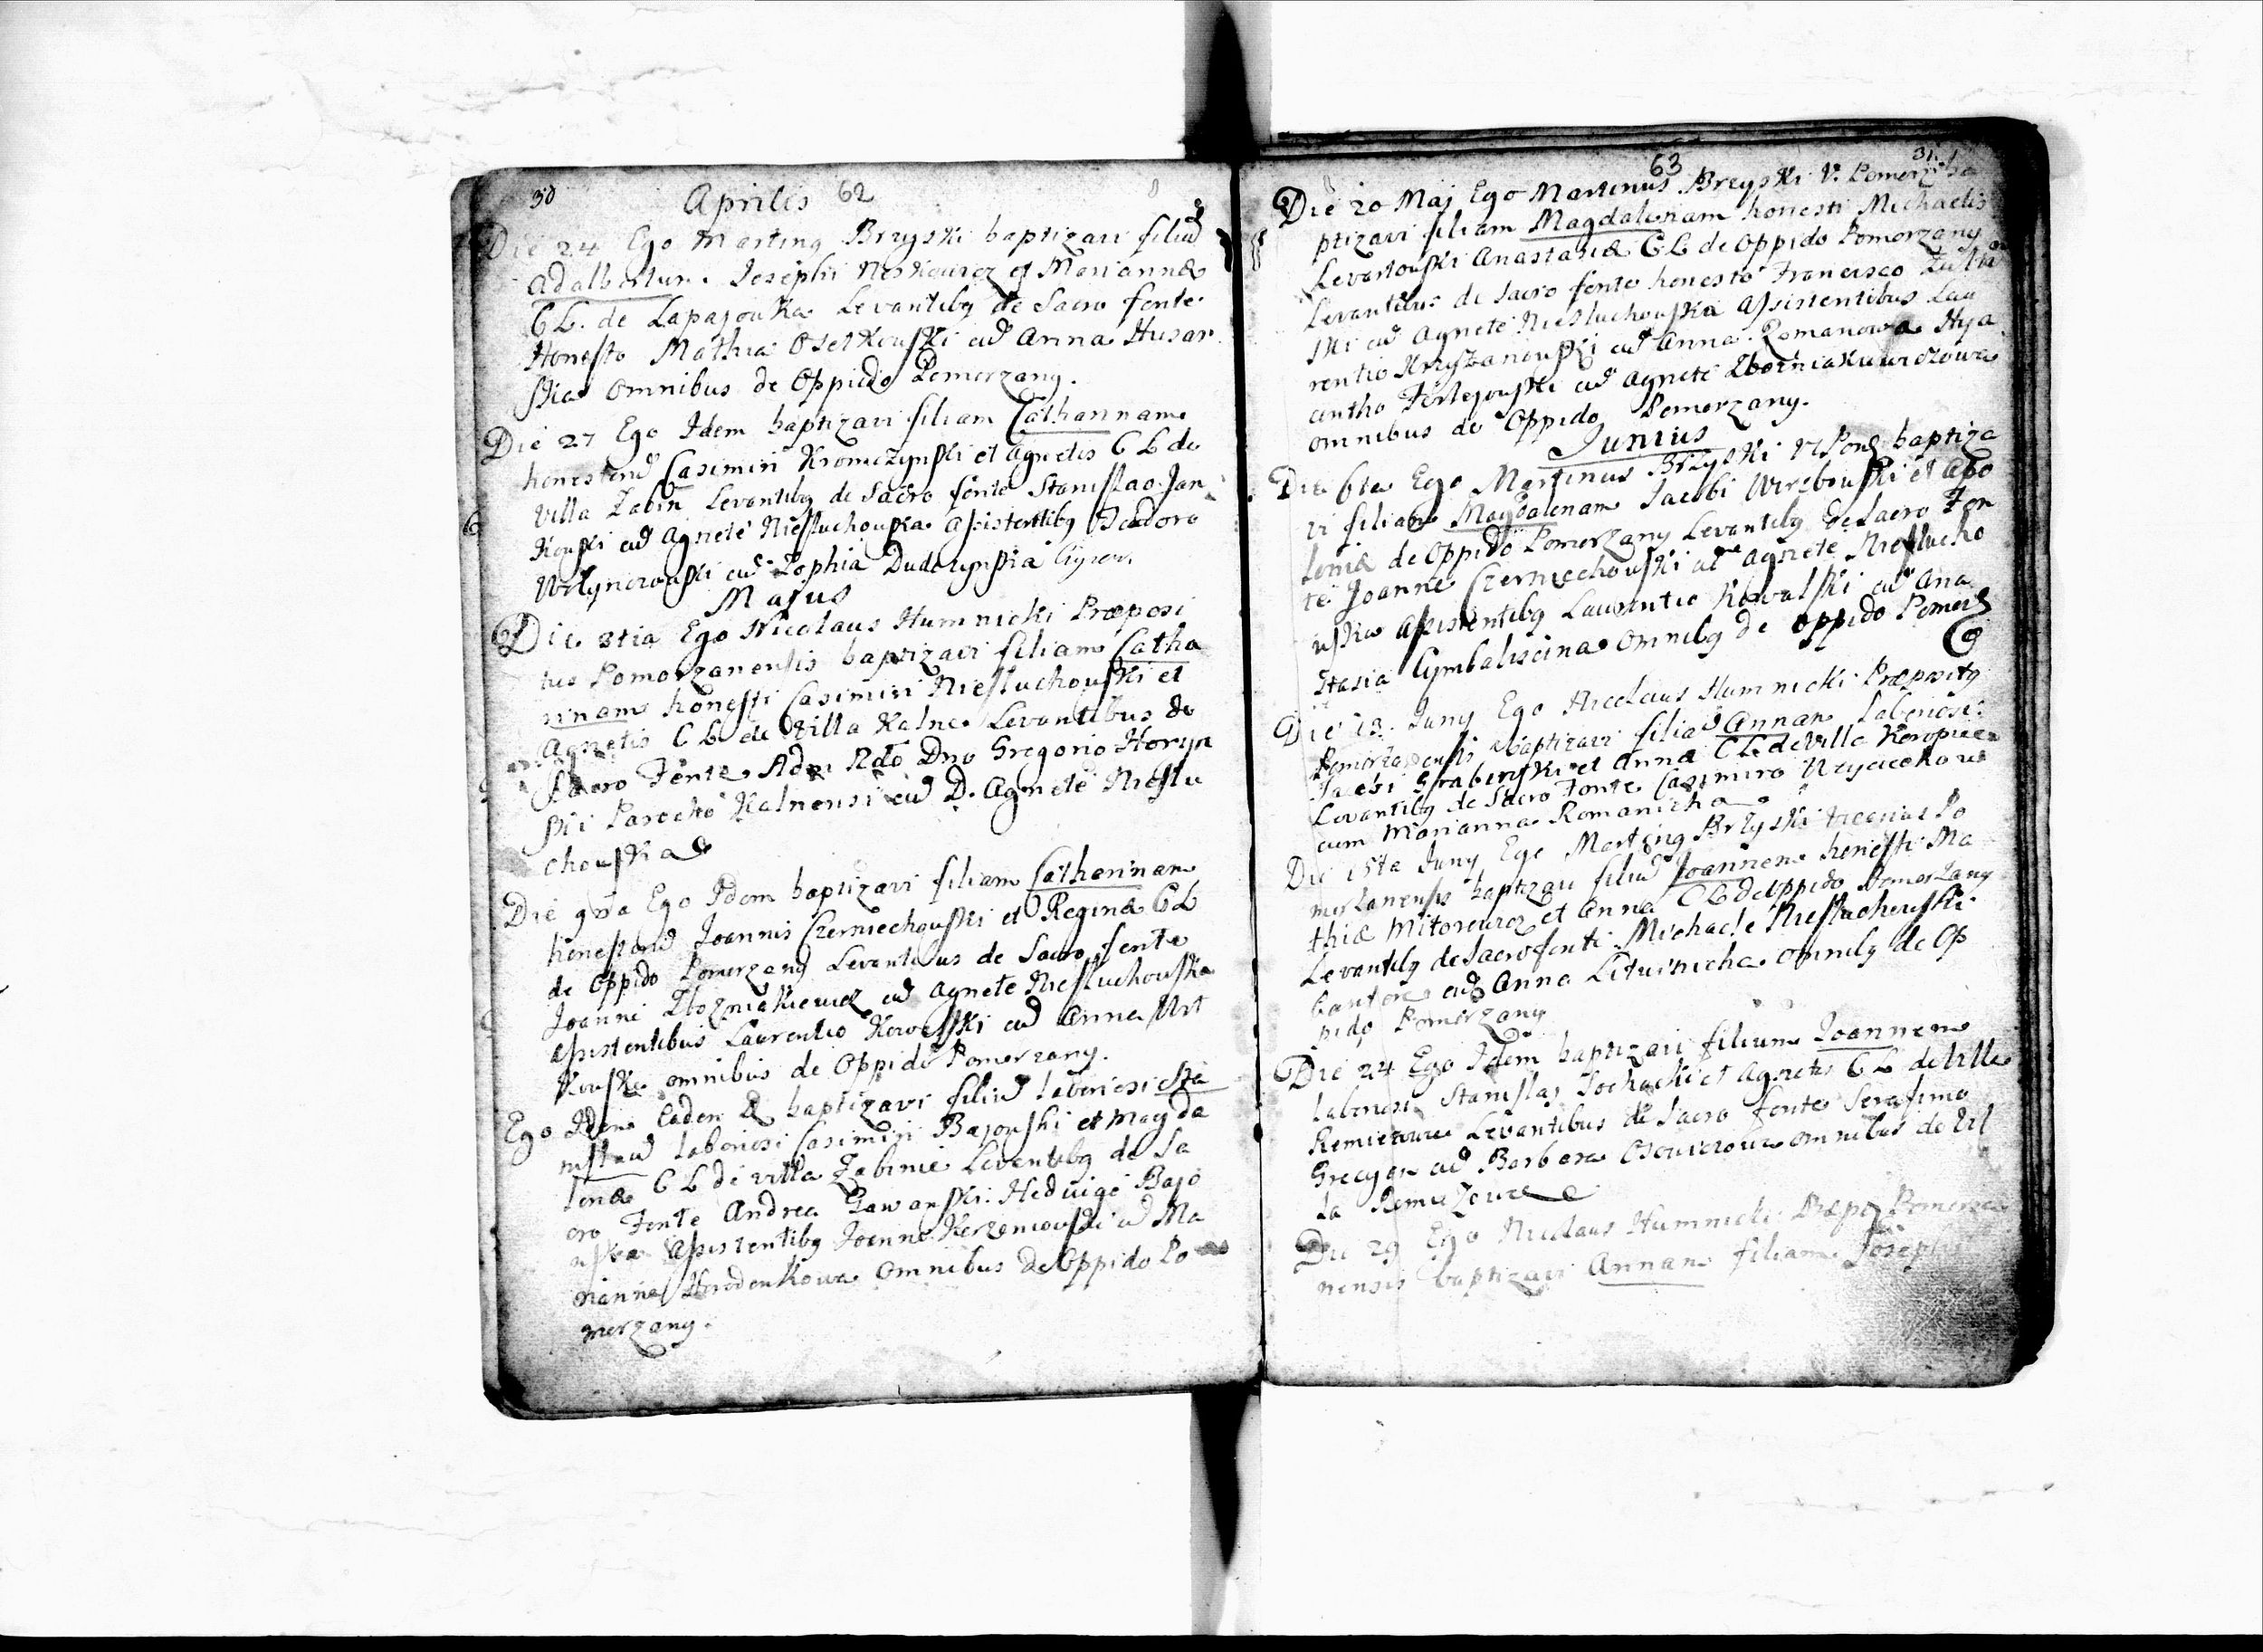 30 Aprilis 62
Die 24 Ego Martinq Brzyski baptizavi filiũ
Adalbertum Josephi et Mariannæ
CL. de Lapajowka Levantibq de Sacro fonte
Honesto Mathia cũ Anna Husar
skia omnibus de Oppido Pomorzany.
Die 27 Ego Idem baptizavi filiam Catharinnam
honestorũ Casimiri Kromczynski et Agnetis CL de
villa Zabin Levantibq de Sacro fonte Stanislao Jan
kowski cũ Agnete Niesluchowska Assistentibq Teodoro
cũ Zophia Dudczynska
Majus
Die 3tia Ego Nicolaus Humnicki Præposi
tus Pomorzanensis baptizavi filiam Catha
rinam honesti Casimiri Niesluchowski et
Agnetis CL de Villa Kalne Levantibus de
Sacro Fonte Adm Rdo Dno Gregorio Horyn
ski Parocho Kalnensi cũ D. Agnete Nieslu
chowska
Die 9na Ego Idem baptizavi filiam Catharinnam
honestorũ Joannis Czerniechowski et Reginæ CL
de Oppido Pomorzany Levantibus de Sacro fonte
Joanne cũ Agnete Niesluchowska
Assistentibus Laurentio Kowalski cũ Anna Wit
kowska omnibus de Oppido Pomorzany.
Ego Idem Eadem D baptizavi filiũ laboriosi Sta
nislaũ laboriosi Casimiri Bajowski et Magda
lenæ CL de villa Zabinie Levantibq de Sa
cro Fonte Andrea Hedvige Bajo
wska Assistentibq Joanne cũ Ma
rianna omnibus de Oppido Po
morzany.
63 31
Die 20 Maj Ego Martinus Brzyski V. Pomorz ba
ptizavi filiam Magdalenam honesti Michaelis
Lewartowski Anastasiæ CL de Oppido Pomorzany
Levantibus de Sacro fonte honesto Francisco
ski cũ Agnete Niesluchowska Assistentibus Lau
rentio Krzyzanowski cũ Anna Romanowa Hya
cintho cũ Agnete
omnibus de Oppido Pomorzany.
Junius
Die 6ta Ego Martinus Brzyski baptiza
vi filiam Magdalenam Jacobi et Apo
loniæ de Oppido Pomorzany Levantibq de Sacro Fon
te Joanne Czerniechowski cũ Agnete Nieslucho
wska Assistentibq Laurentio Kowalski cũ Ana
stasia Cymbaliscina omnibq de Oppido Pomorz
Die 13 Juny Ego Nicolaus Humnicki Præpositq
Pomorzanensis baptizavi filiã Annam laboriosi
et Anna CL de Villa
Levantibq de Sacro Fonte Casimiro
cum Marianna Romanicha
Die 15ta Juny Ego Martinq Brzyski Po
morzanensis baptizavi filiũ Joannem honesti Ma
thiæ et Anna CL de Oppido Pomorzany
Levantibq de Sacro fonte Michaele Niesluchowski
Cantore cũ Anna omnibq de Op
pido Pomorzany
Die 24 Ego Idem baptizavi filium Joannem
laboriosi Stanislaj Sochacki et Agnetis CL de Villa
Remizowce Levantibus de Sacro fonte Serafimo
cũ Barbara omnibus de Vil
la Remizowce
Die 29 Ego Nicolaus Humnicki Præp Pomorza
nensis baptizavi Annam filiam Josephi